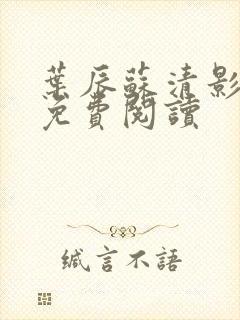 葉辰蘇清影
免費閱讀
緘言不語